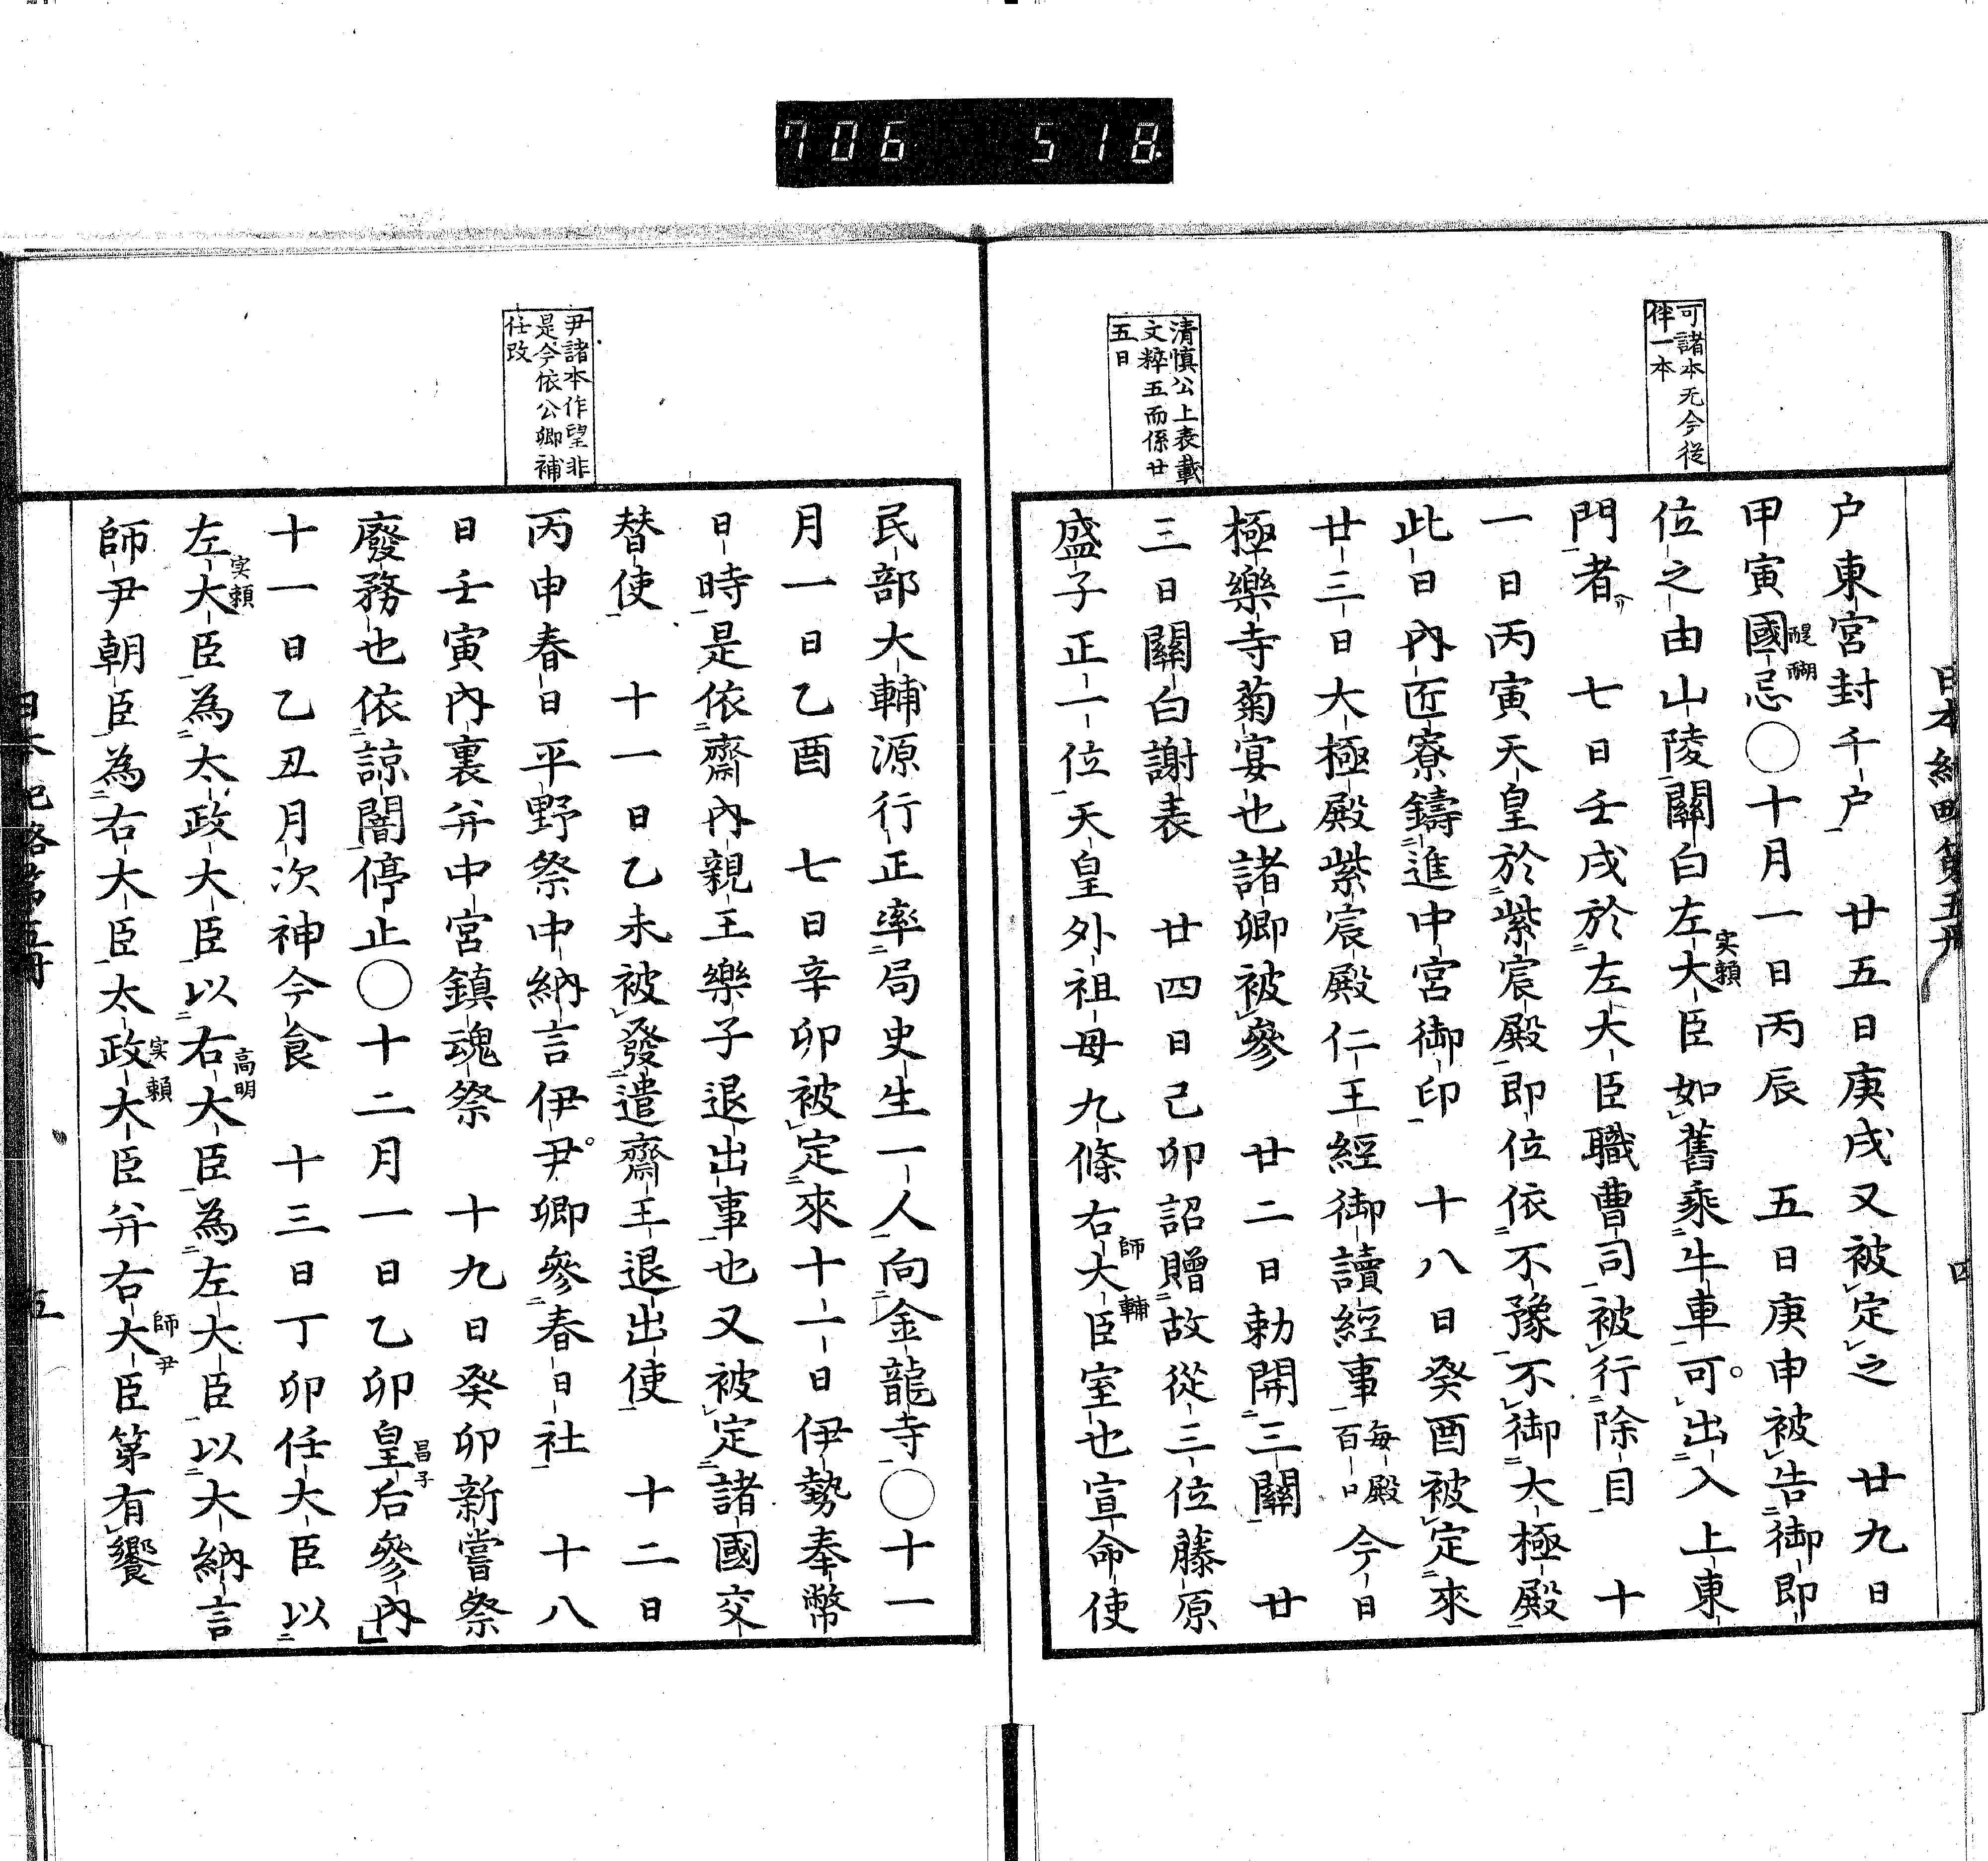 706 518
可諸本无今從
伴一本
清慎公上表載
文粹五而係廿
五日
日本紀畧第五册
四
户東宮封千户 廿五日庚戌又被定之 廿九日
甲寅國忌〇十月一日丙辰 五日庚申被告御即
醍醐
位之由山陵關白左大臣如舊乘牛車可出入上東
実賴
門者 七日壬戌於左大臣職曹司被行除目 十
一日丙寅天皇於紫宸殿即位依不豫不御大極殿
此日內匠寮鑄進中宮御印 十八日癸酉被定來
廿三日大極殿紫宸殿仁王經御讀經事每殿百口今日
極樂寺菊宴也諸卿被參 廿二日勅開三關 廿
三日關白謝表 廿四日己卯詔贈故從三位藤原
盛子正一位天皇外祖母九條右大臣室也宣命使
師輔
尹諸本作望非
是今依公卿補
任改
民部大輔源行正率局史生一人向金龍寺〇十一
月一日乙酉 七日辛卯被定來十一日伊勢奉幣
日時是依齋內親王樂子退出事也又被定諸國交
替使 十一日乙未被發遣齋王退出使 十二日
丙申春日平野祭中納言伊尹卿參春日社 十八
日壬寅內裏并中宮鎮魂祭 十九日癸卯新嘗祭
廢務也依諒闇停止〇十二月一日乙卯皇后參內
昌子
十一日乙丑月次神今食 十三日丁卯任大臣以
左大臣為太政大臣以右大臣為左大臣以大納言
実賴 高明
師尹朝臣為右大臣太政大臣并右大臣第有饗
実賴 師尹
日本紀畧第五册
五